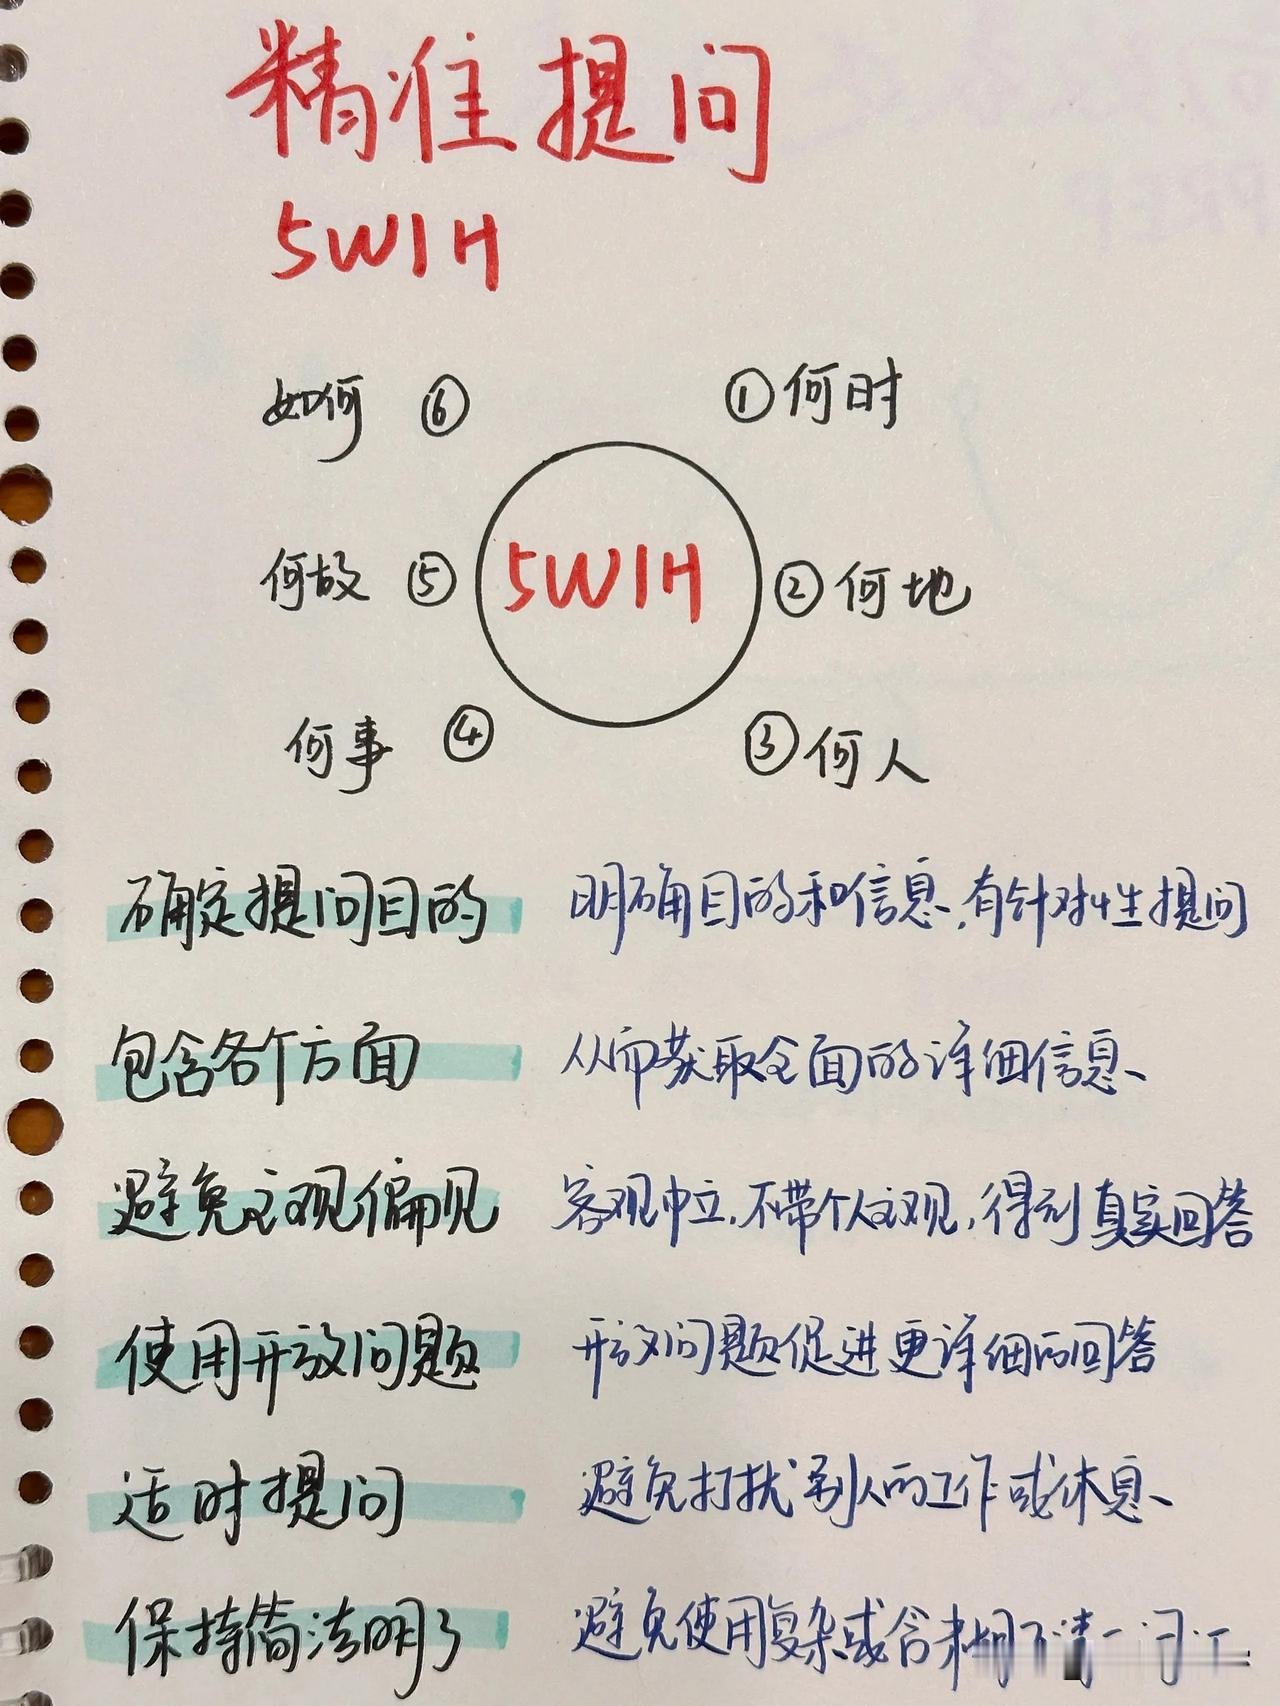 精准提问
5W1H
如何 ⑥ ① 何时
5W1H
何故 ⑤ ② 何地
何事 ④ ③ 何人
确定提问目的 明确目的和信息,有针对性提问
包含各个方面 从而获取全面的详细信息、
避免主观偏见 客观中立,不带个人主观,得到真实回答
使用开放问题 开放问题促进更详细的回答
适时提问 避免打扰别人的工作或休息、
保持简洁明了 避免使用复杂或含糊不清
PREP